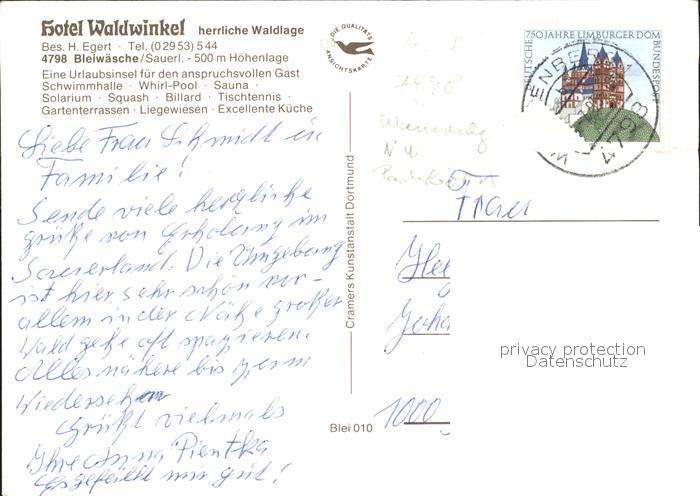 Hotel Waldwinkel herrliche Waldlage
Bes. H. Egert · Tel. (0 29 53) 5 44
4798 Bleiwäsche/Sauerl. - 500 m Höhenlage
Eine Urlaubsinsel für den anspruchsvollen Gast
Schwimmhalle · Whirl-Pool · Sauna ·
Solarium · Squash · Billard · Tischtennis ·
Gartenterrassen · Liegewiesen · Excellente Küche
DIE QUALITÄTS
ANSICHTSKARTE
750 JAHRE LIMBURGER DOM
DEUTSCHE BUNDESPOST
Liebe Frau Schmidt u
Familie!
Sende viele herzliche
Grüße von Erholung im
Sauerland. Die Umgebung
ist hier sehr schön vor-
allem in der Nähe großer
Wald gehe oft spazieren.
Alles nähere bis zum
Wiedersehen
Grüßt vielmals
Ihre Anna Pientka
Es gefällt mir gut!
Cramers Kunstanstalt Dortmund
Blei 010
7498
Frau
1000
privacy protection
Datenschutz